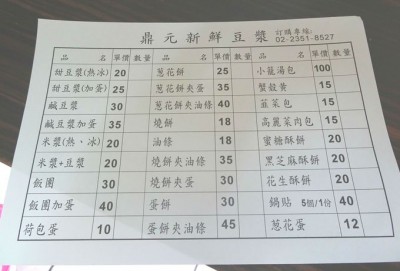 鼎元新鮮豆漿 訂購專線:
02-2351-8527
品 名 單價 數量 品 名 單價 數量 品 名 單價 數量
甜豆漿(熱冰) 20 蔥花餅 25 小籠湯包 100
甜豆漿(加蛋) 25 蔥花餅夾蛋 35 蟹殼黃 15
鹹豆漿 30 蔥花餅夾油條 40 韮菜包 15
鹹豆漿加蛋 35 燒餅 18 高麗菜肉包 15
米漿(熱、冰) 20 油條 18 蜜糖酥餅 20
米漿+豆漿 20 燒餅夾油條 35 黑芝麻酥餅 20
飯團 30 燒餅夾蛋 30 花生酥餅 20
飯團加蛋 40 蛋餅 30 鍋貼 5個/1份 40
荷包蛋 10 蛋餅夾油條 45 蔥花蛋 12